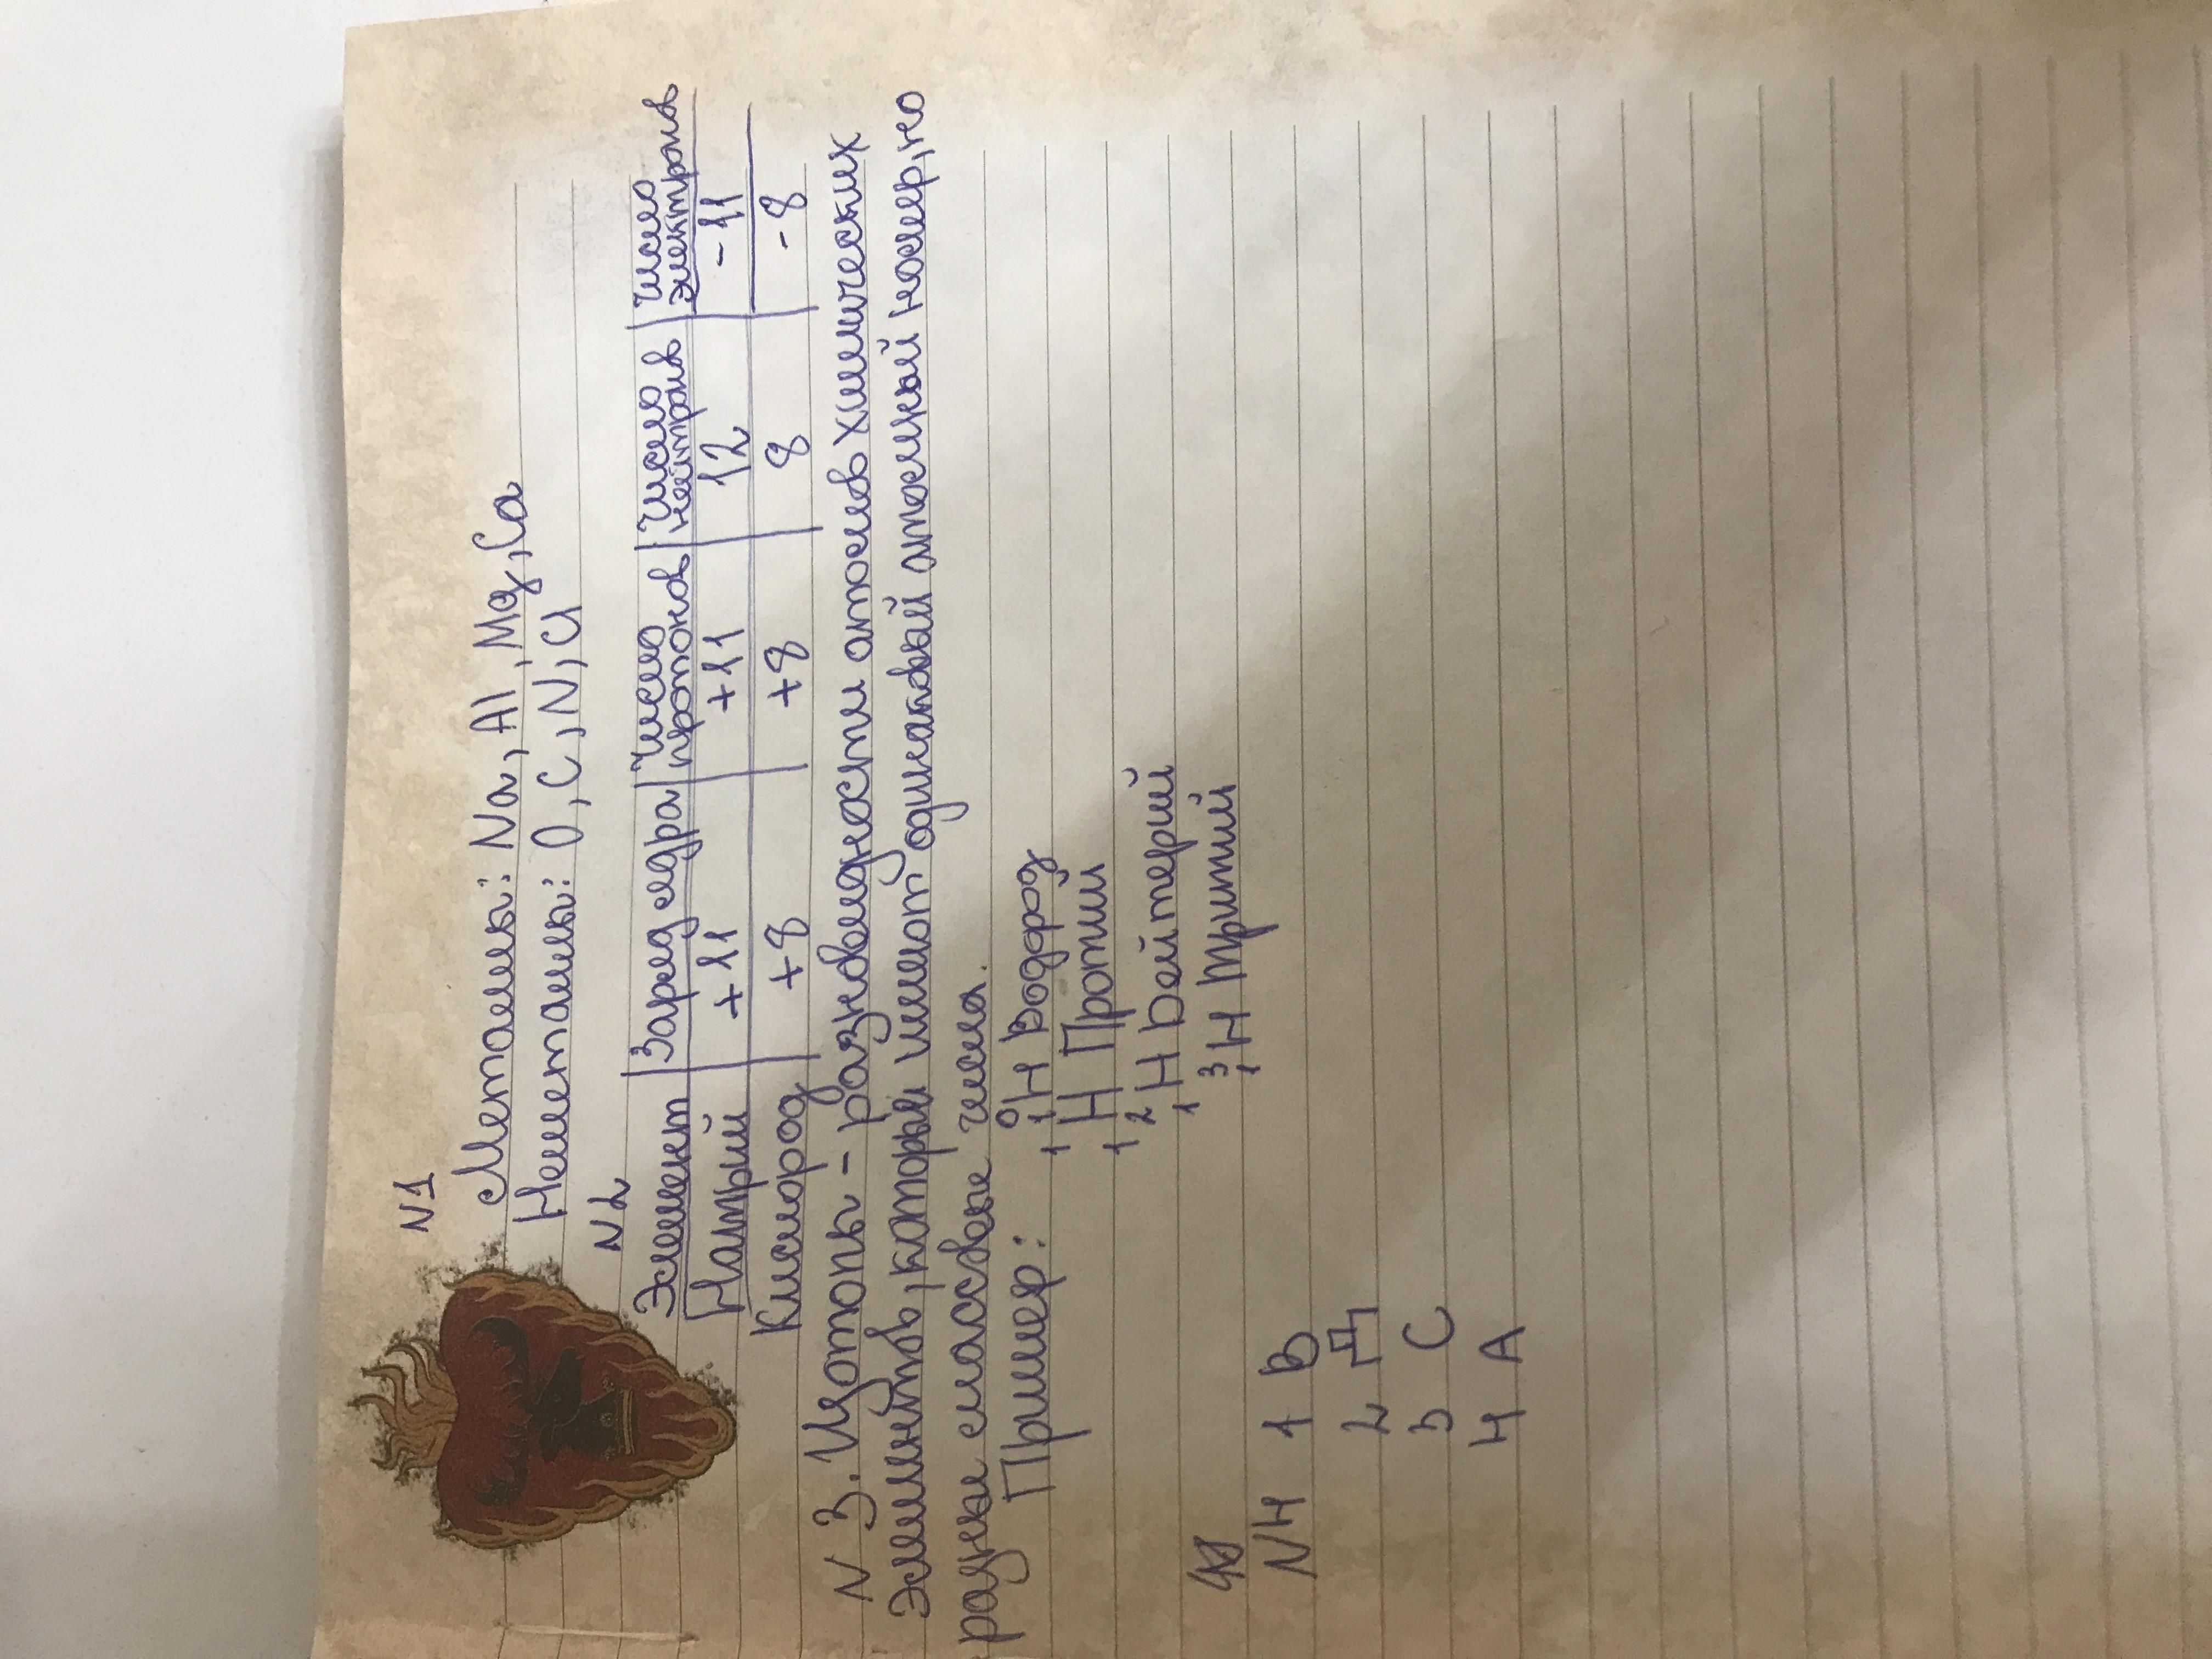 N1
Металлы: Na, Al, Mg, Ca
Неметаллы: O, C, N, Cl
N2
Элемент | Заряд ядра | Число протонов | Число нейтронов | Число электронов
Натрий | +11 | +11 | 12 | -11
Кислород | +8 | +8 | 8 | -8
N 3. Изотопы - разновидности атомов химических
элементов, которые имеют одинаковый атомный номер, но
разные массовые числа.
Пример: H Водород
1 1 H Протий
2 1 H Дейтерий
3 1 H Тритий
N4 1 B
2 Д
3 C
4 A